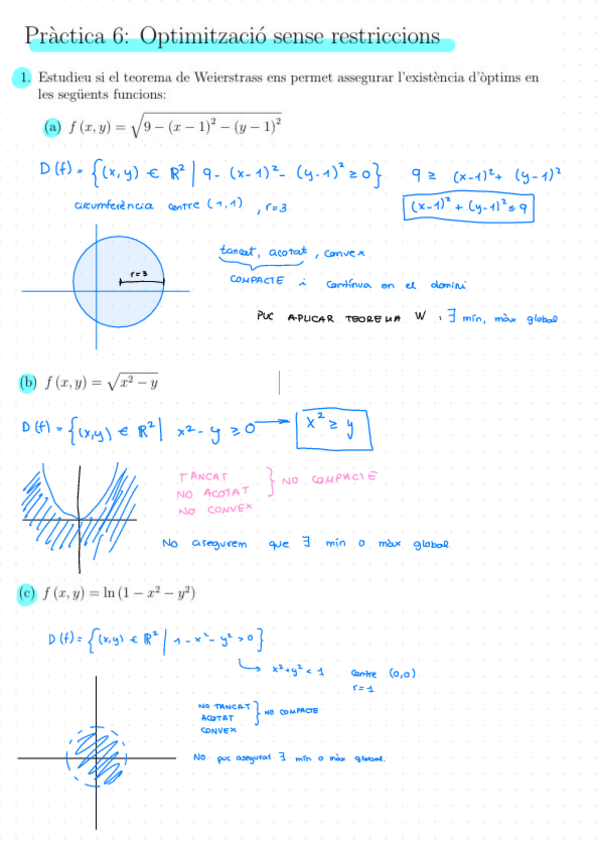 Pràctica 6: Optimització sense restriccions
1. Estudieu si el teorema de Weierstrass ens permet assegurar l'existència d'òptims en
les següents funcions:
(a) f (x, y) = √(9 − (x − 1)² − (y − 1)²)
D(f) = {(x,y) ∈ ℝ² | 9 - (x-1)² - (y-1)² ≥ 0} 9 ≥ (x-1)² + (y-1)²
circumferència centre (1,1) , r=3 (x-1)² + (y-1)² ≤ 9
r=3
tancat, acotat, convex
COMPACTE i contínua en el domini
PUC APLICAR TEOREMA W : ∃ mín, màx global
(b) f (x, y) = √(x² − y)
D(f) = {(x,y) ∈ ℝ² | x² - y ≥ 0 → x² ≥ y
TANCAT
NO ACOTAT } NO COMPACTE
NO CONVEX
No asegurem que ∃ mín o màx global
(c) f (x, y) = ln (1 − x² − y²)
D(f) = {(x,y) ∈ ℝ² | 1 - x² - y² > 0}
↳ x² + y² < 1 centre (0,0)
r=1
NO TANCAT
ACOTAT } NO COMPACTE
CONVEX
No puc asegurar ∃ mín o màx global.